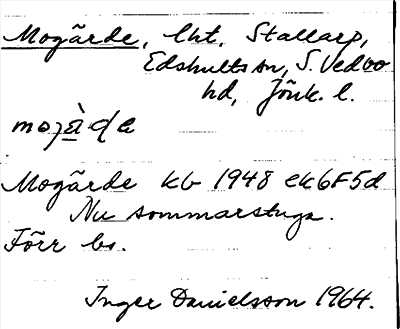 Mogärde, lht, Stallarp,
Edshults sn, S. Vedbo
hd, Jönk. l.
Mogärde kb 1948 ek6F5d
Nu sommarstuga.
Förr bs.
Inger Danielsson 1964.